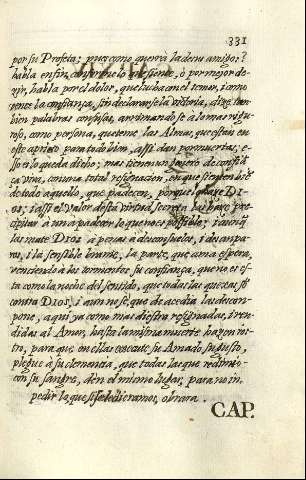 331
por su Profeta; pues como querria la de su amigo;?
habla en fin, conforme lo que siente, ò por mejor de-
zir, habla por el dolor, que lucha con el temor, i como
vence la confiança, sin declararse la vitoria, dize tam
bien palabras confusas, arrimandose à lo mas rigu-
roso, como persona, que teme las Almas, que estàn en
este aprieto para todo bien, assi dan por muertas; e-
llo es i lo queda dicho; mas tienen un genero de confiã-
ça viva, con una total resignacion, en que siempre bie
de todo aquello, que padecen, porque lo haze Di-
os; i assi el valor desta virtud secreta las haze pre-
cipitar à una padecer lo que no es possible; i aunq̃
las mate Dios à penas à desconsuelos, i desanpa-
ros, i la sensible parte, la parte, que ama espera,
venciendo à los tormentos su confiança, que no es es-
ta como la noche del sentido, que todas las quexas sõ
contra Dios, i aun no se, que de acedia las descon-
pone, aqui ya como mas diestra resignadas, i ren-
didas al Amor, hasta la misma muerte hazen ros-
tro, para que en ellas execute su Amado su gusto,
plegue à su clemencia, que todas las que redimio
con su sangre, den el mismo lugar, para no in-
pedir lo que si se le dieramos, obrara.
CAP.